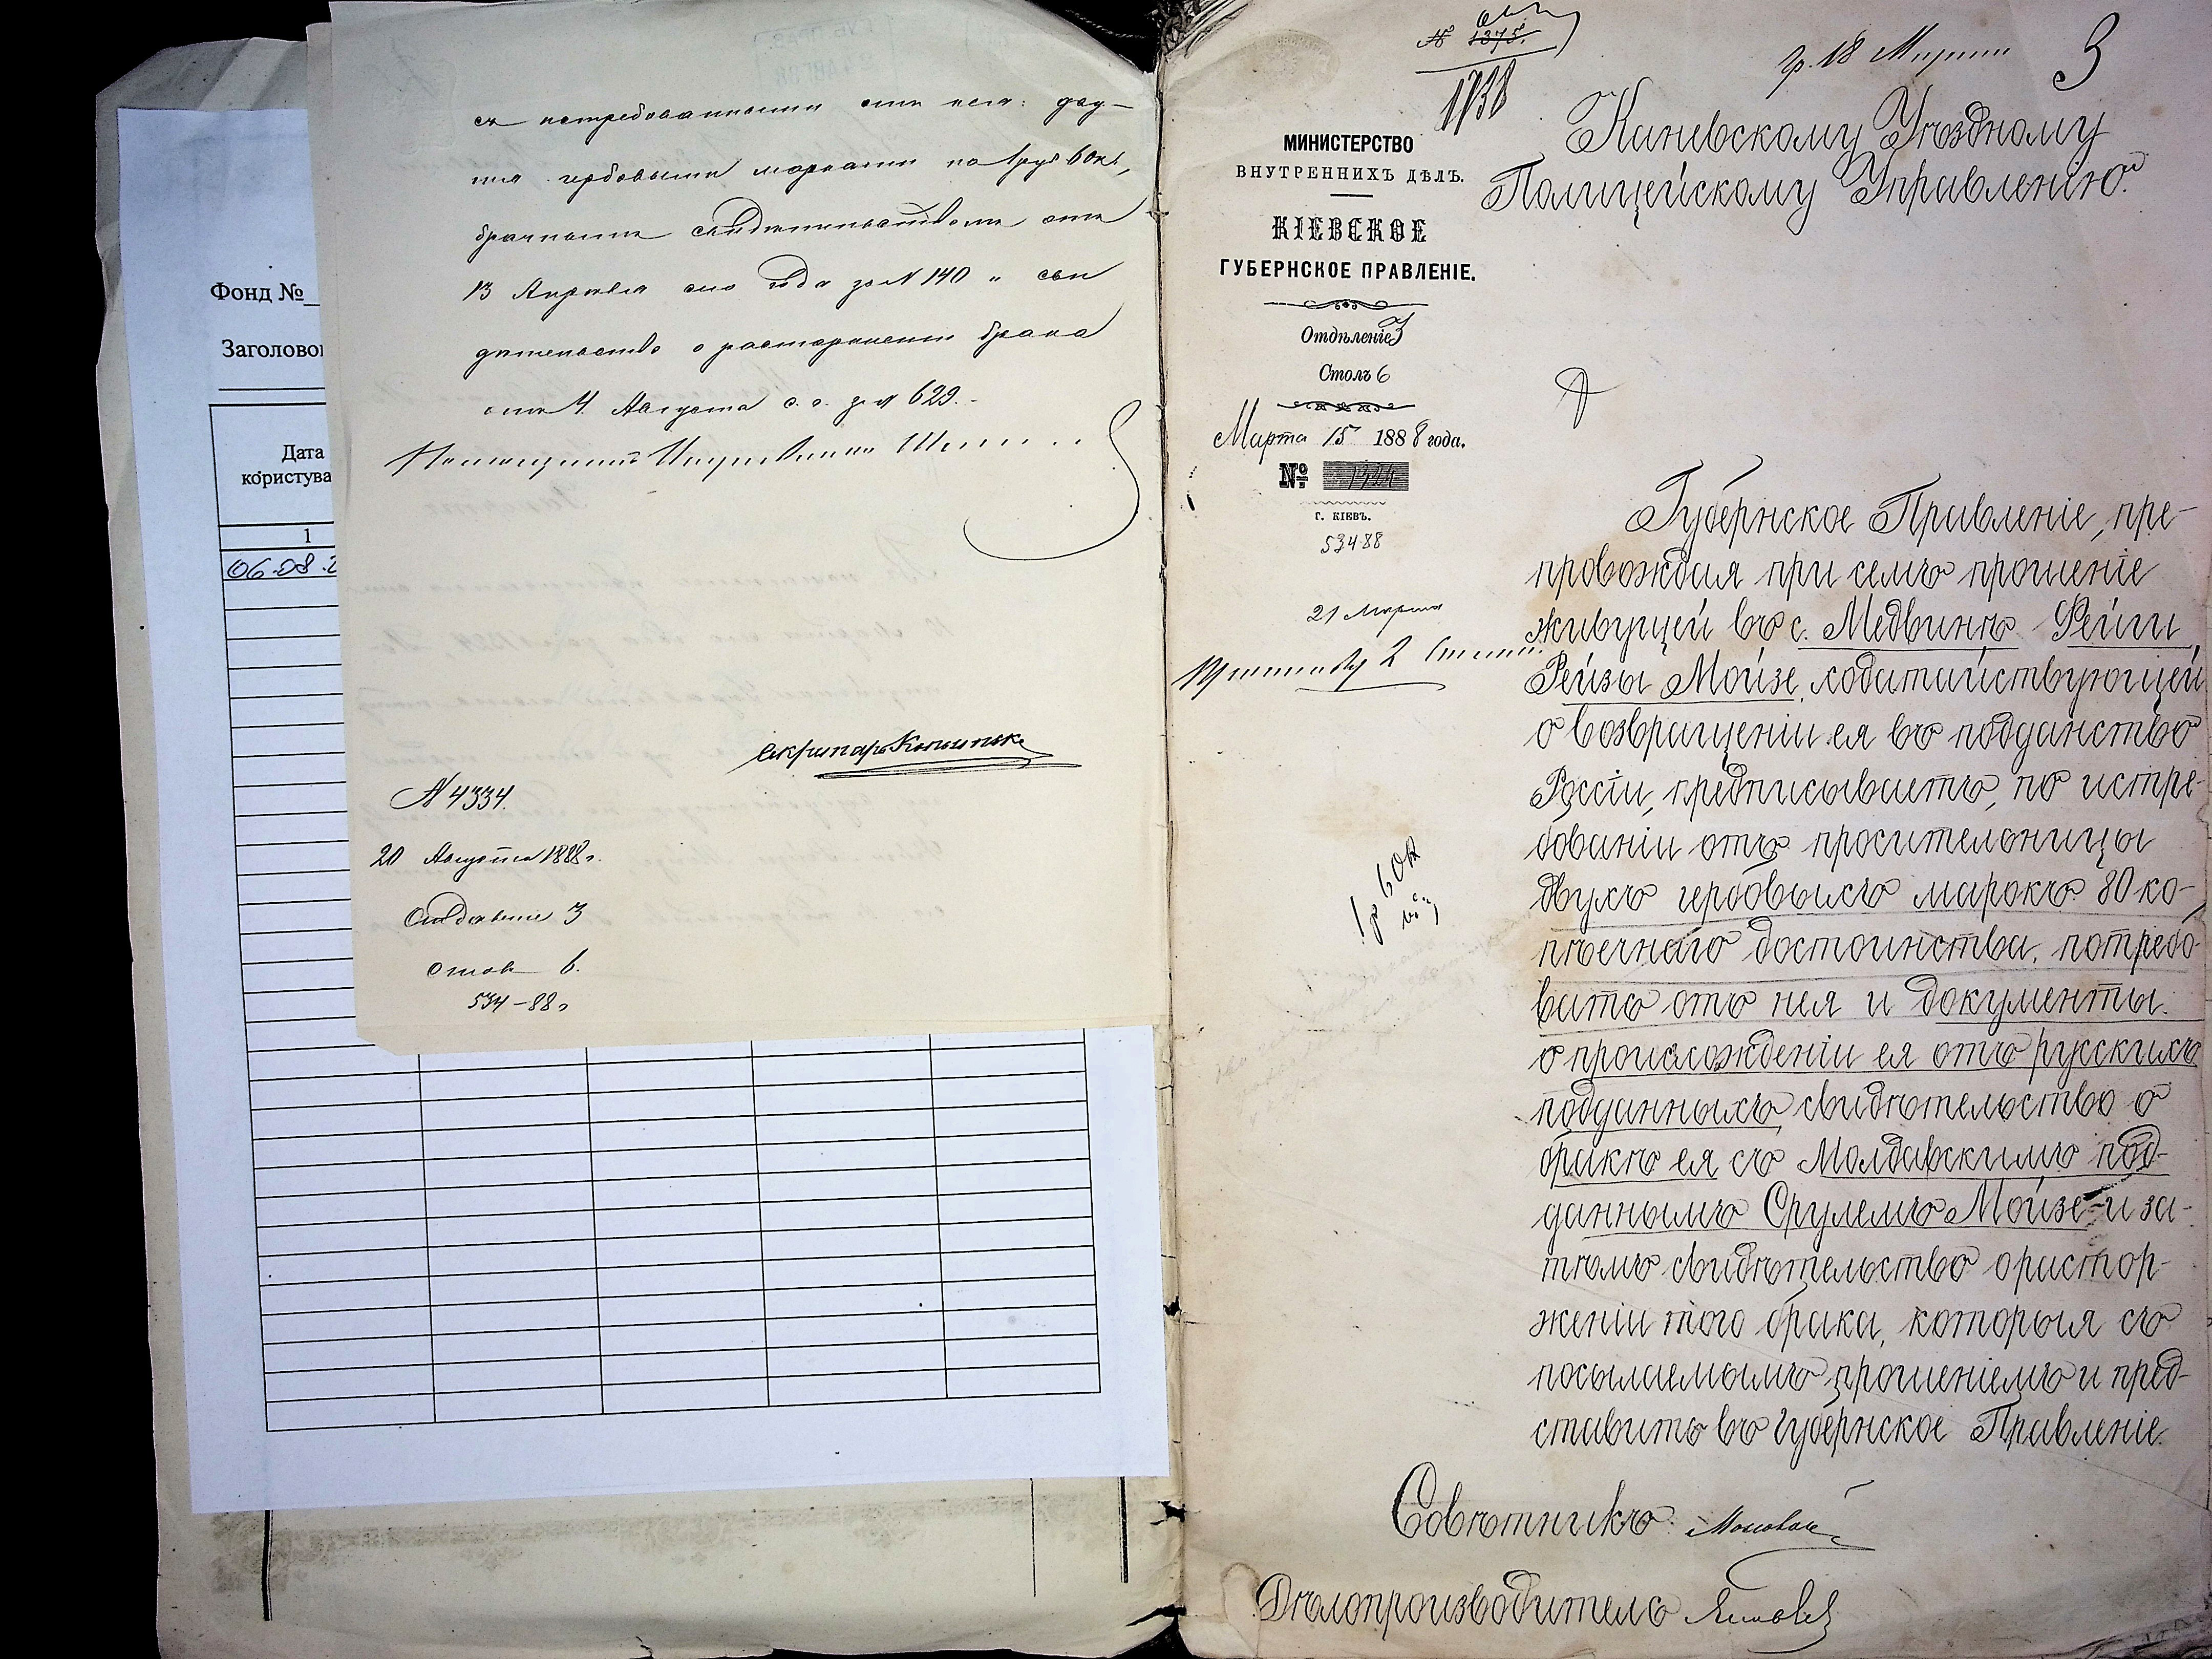 Фонд №
Заголово
Дата
користува
1
06.08.2
ся истребованными отъ нея: дву-
мя гербовыми марками по 1 руб 60 к.,
брачнымъ свидѣтельствомъ отъ
13 Апрѣля сего года за N 140 и сви
дѣтельство о расторженіи брака
отъ 4 Августа с. г. за N 629.
Секретарь
N 4334.
20 Августа 1888 г.
Отдѣленіе 3
столъ 6.
534-88 г
№ 1375.
1738
р. 18 Марта
3
Каневскому Уѣздному
Полицейскому Управленію.
МИНИСТЕРСТВО
ВНУТРЕННИХЪ ДѢЛЪ.
КІЕВСКОЕ
ГУБЕРНСКОЕ ПРАВЛЕНІЕ.
Отдѣленіе 3
Столъ 6
Марта 15 1888 года.
№ 1924
Г. КІЕВЪ.
534 88
21 Марта
2
1 р 60 к
Губернское Правленіе, пре-
провождая при семъ прошеніе
живущей въ с. Медвинѣ Рейзи
Рейзы Мойзе, ходатайствующей
о возвращеніи ея въ подданство
Россіи, предписываетъ, по истре-
бованіи отъ просительницы
двухъ гербовыхъ марокъ 80 ко-
пѣечнаго достоинства, потребо-
вать отъ нея и документы
о происхожденіи ея отъ русскихъ
подданныхъ, свидѣтельство о
бракѣ ея съ Молдавскимъ под-
даннымъ Срулемъ Мойзе и за-
тѣмъ свидѣтельство о растор-
женіи того брака, которыя съ
посылаемымъ прошеніемъ и пред-
ставить въ Губернское Правленіе.
Совѣтникъ
Дѣлопроизводитель